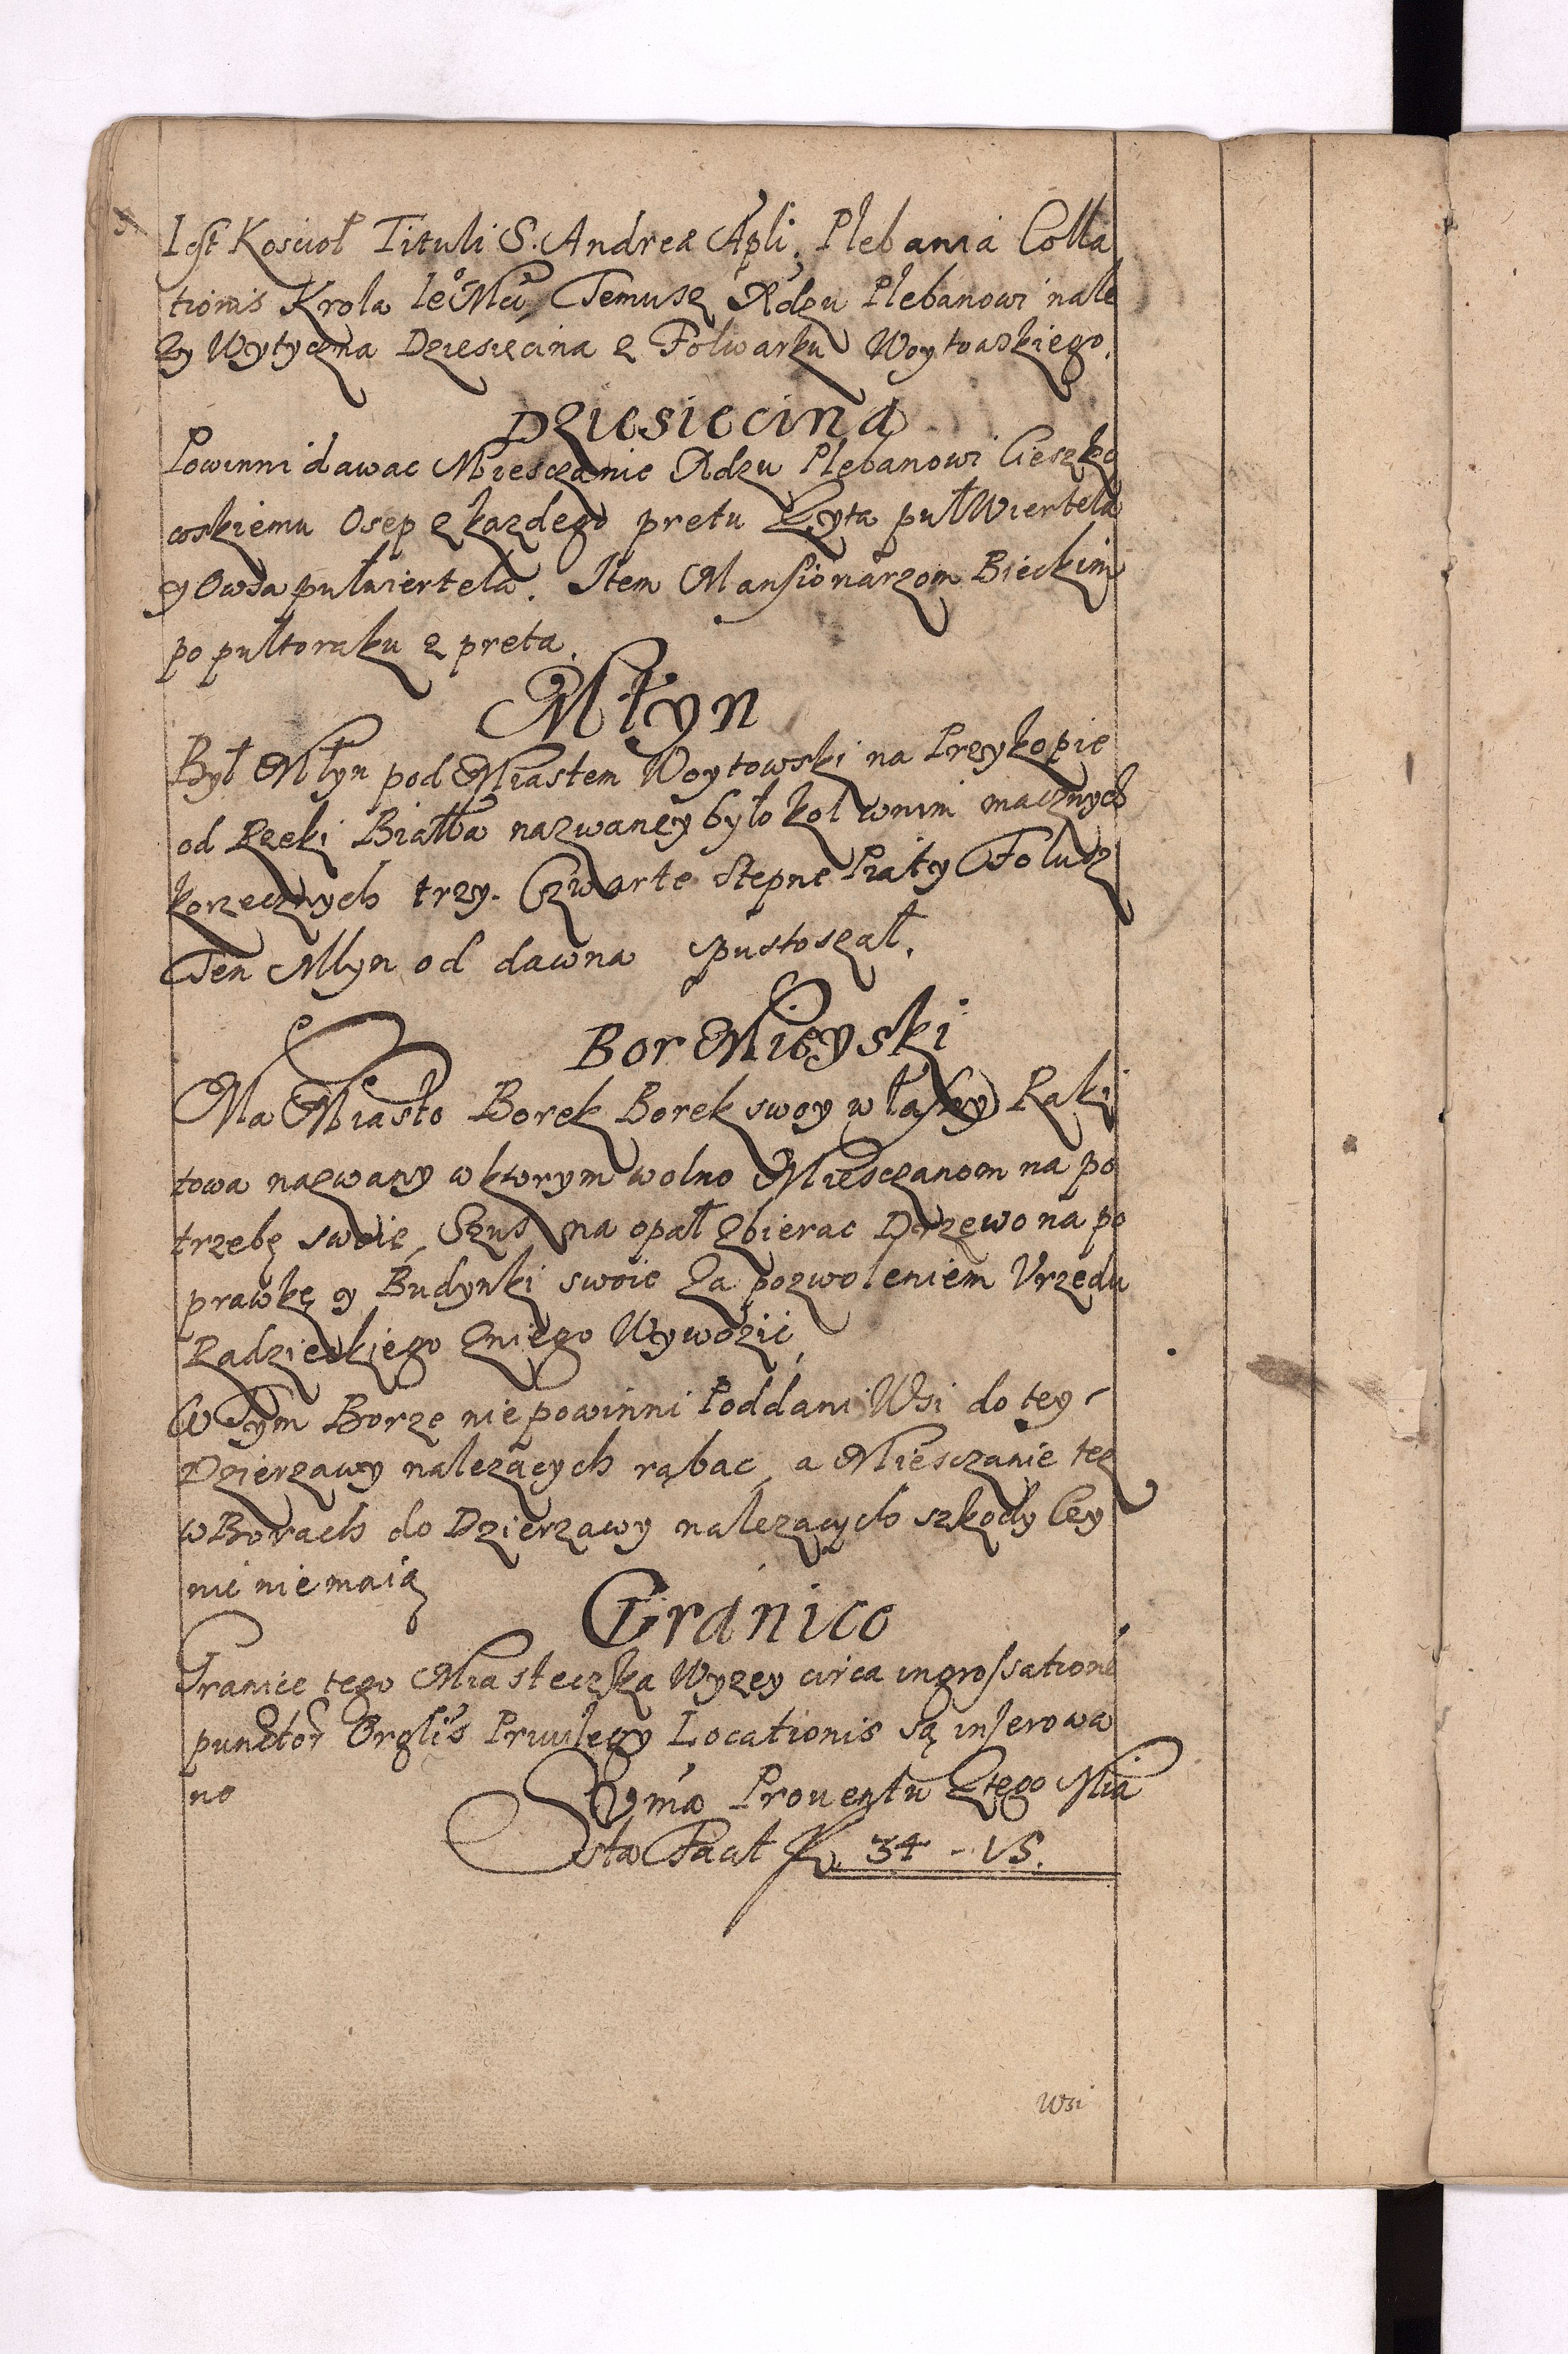 Iest Koscioł Tituli S. Andreæ Apli, Plebania Colla
tionis Krola Ieo Mci, Temusz Xdzu Plebanowi nale
zy Wytyczna Dziesięcina z Folwarku Woytowskiego.
Dziesiecina
Powinni dawac Miesczanie Xdzu Plebanowi Cieszko
woskiemu Osep z kazdego pretu Zyta puł Wiertela
y Owsa pułwiertela. Item Mansionarzom Bieckim
po pułtoraku z preta.
Młyn
Był Młyn pod Miastem Woytowski na Przykopie
od Rzeki Białła nazwaney było koł wnim macznych
korzecznych trzy. Czwarte Stepne Piąty Folusz
Ten Młyn od dawna spustoszał.
Bor Mieyski
Ma Miasto Borek Borek swoy własny Raki
towa nazwany w ktorym wolno Miesczanom na po
trzebę swoię, Szusz na opał zbierac Drzewo na po
prawkę y Budynki swoie za pozwoleniem Vrzędu
Radzieckiego zniego Wywozić,
W Tym Borze nie powinni Poddani Wsi do tey
Dzierzawy nalezących rąbac, a Miesczanie tez
w Borach do Dzierzawy nalezących szkody Czy
nic nie maią
Granice
Granice tego Miasteczka Wyzey circa ingrossationē
punctor Orglis Priuilegy Locationis są inserowa
ne
Summa Prouentu Ztego Mia
sta Facit f. 34 - 15.
Wsi